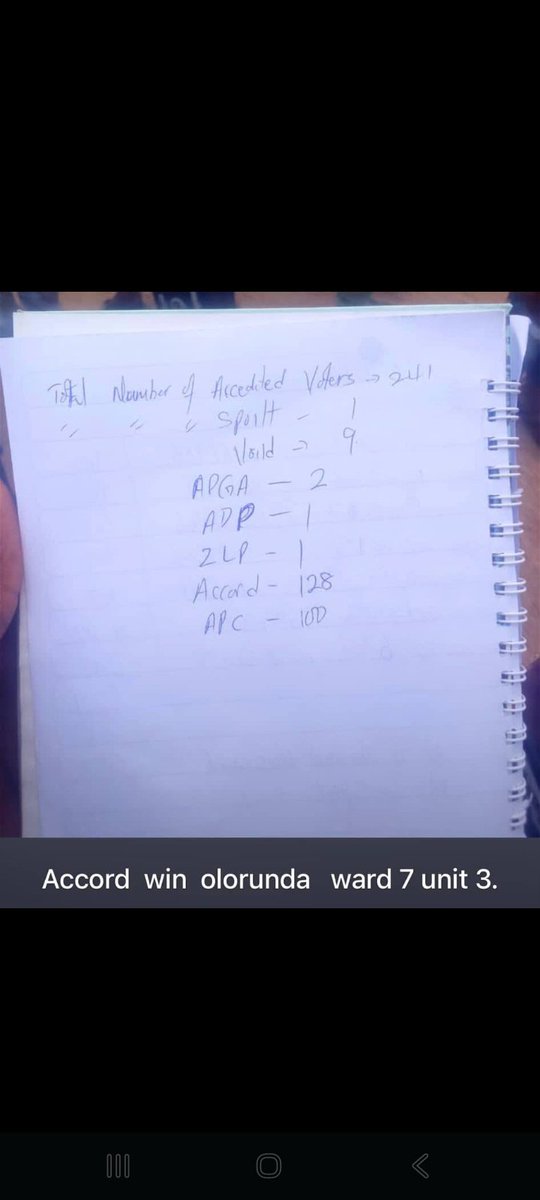 Total Number of Accedited Voters → 241
〃 〃 〃 Spoilt - 1
Void → 9
APGA — 2
ADP — 1
ZLP - 1
Accord - 128
APC - 100
Accord win olorunda ward 7 unit 3.